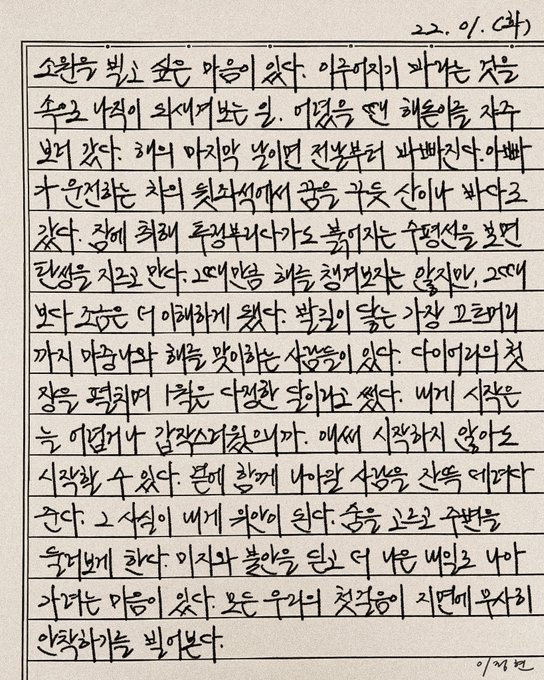 22. 01. (화)
소원을 빌고 싶은 마음이 있다. 이루어지기 바라는 것을
속으로 나직이 되새겨보는 일. 어렸을 땐 해돋이를 자주
보러 갔다. 해의 마지막 날이면 전날부터 바빠진다. 아빠
가 운전하는 차의 뒷좌석에서 꿈을 꾸듯 산이나 바다로
갔다. 잠에 취해 투정부리다가도 붉어지는 수평선을 보면
탄성을 지르고 만다. 그때만큼 해를 챙겨보지는 않지만, 그때
보다 조금은 더 이해하게 됐다. 발길이 닿는 가장 끄트머리
까지 마중나와 해를 맞이하는 사람들이 있다. 다이어리의 첫
장을 펼치며 1월은 다정한 달이라고 썼다. 내게 시작은
늘 어렵거나 갑작스러웠으니까. 애써 시작하지 않아도
시작할 수 있다. 곁에 함께 나아갈 사람을 잔뜩 데려다
준다. 그 사실이 내게 위안이 된다. 숨을 고르고 주변을
둘러보게 한다. 미지와 불안을 딛고 더 나은 내일로 나아
가려는 마음이 있다. 모든 우리의 첫걸음이 지면에 무사히
안착하기를 빌어본다.
이정현